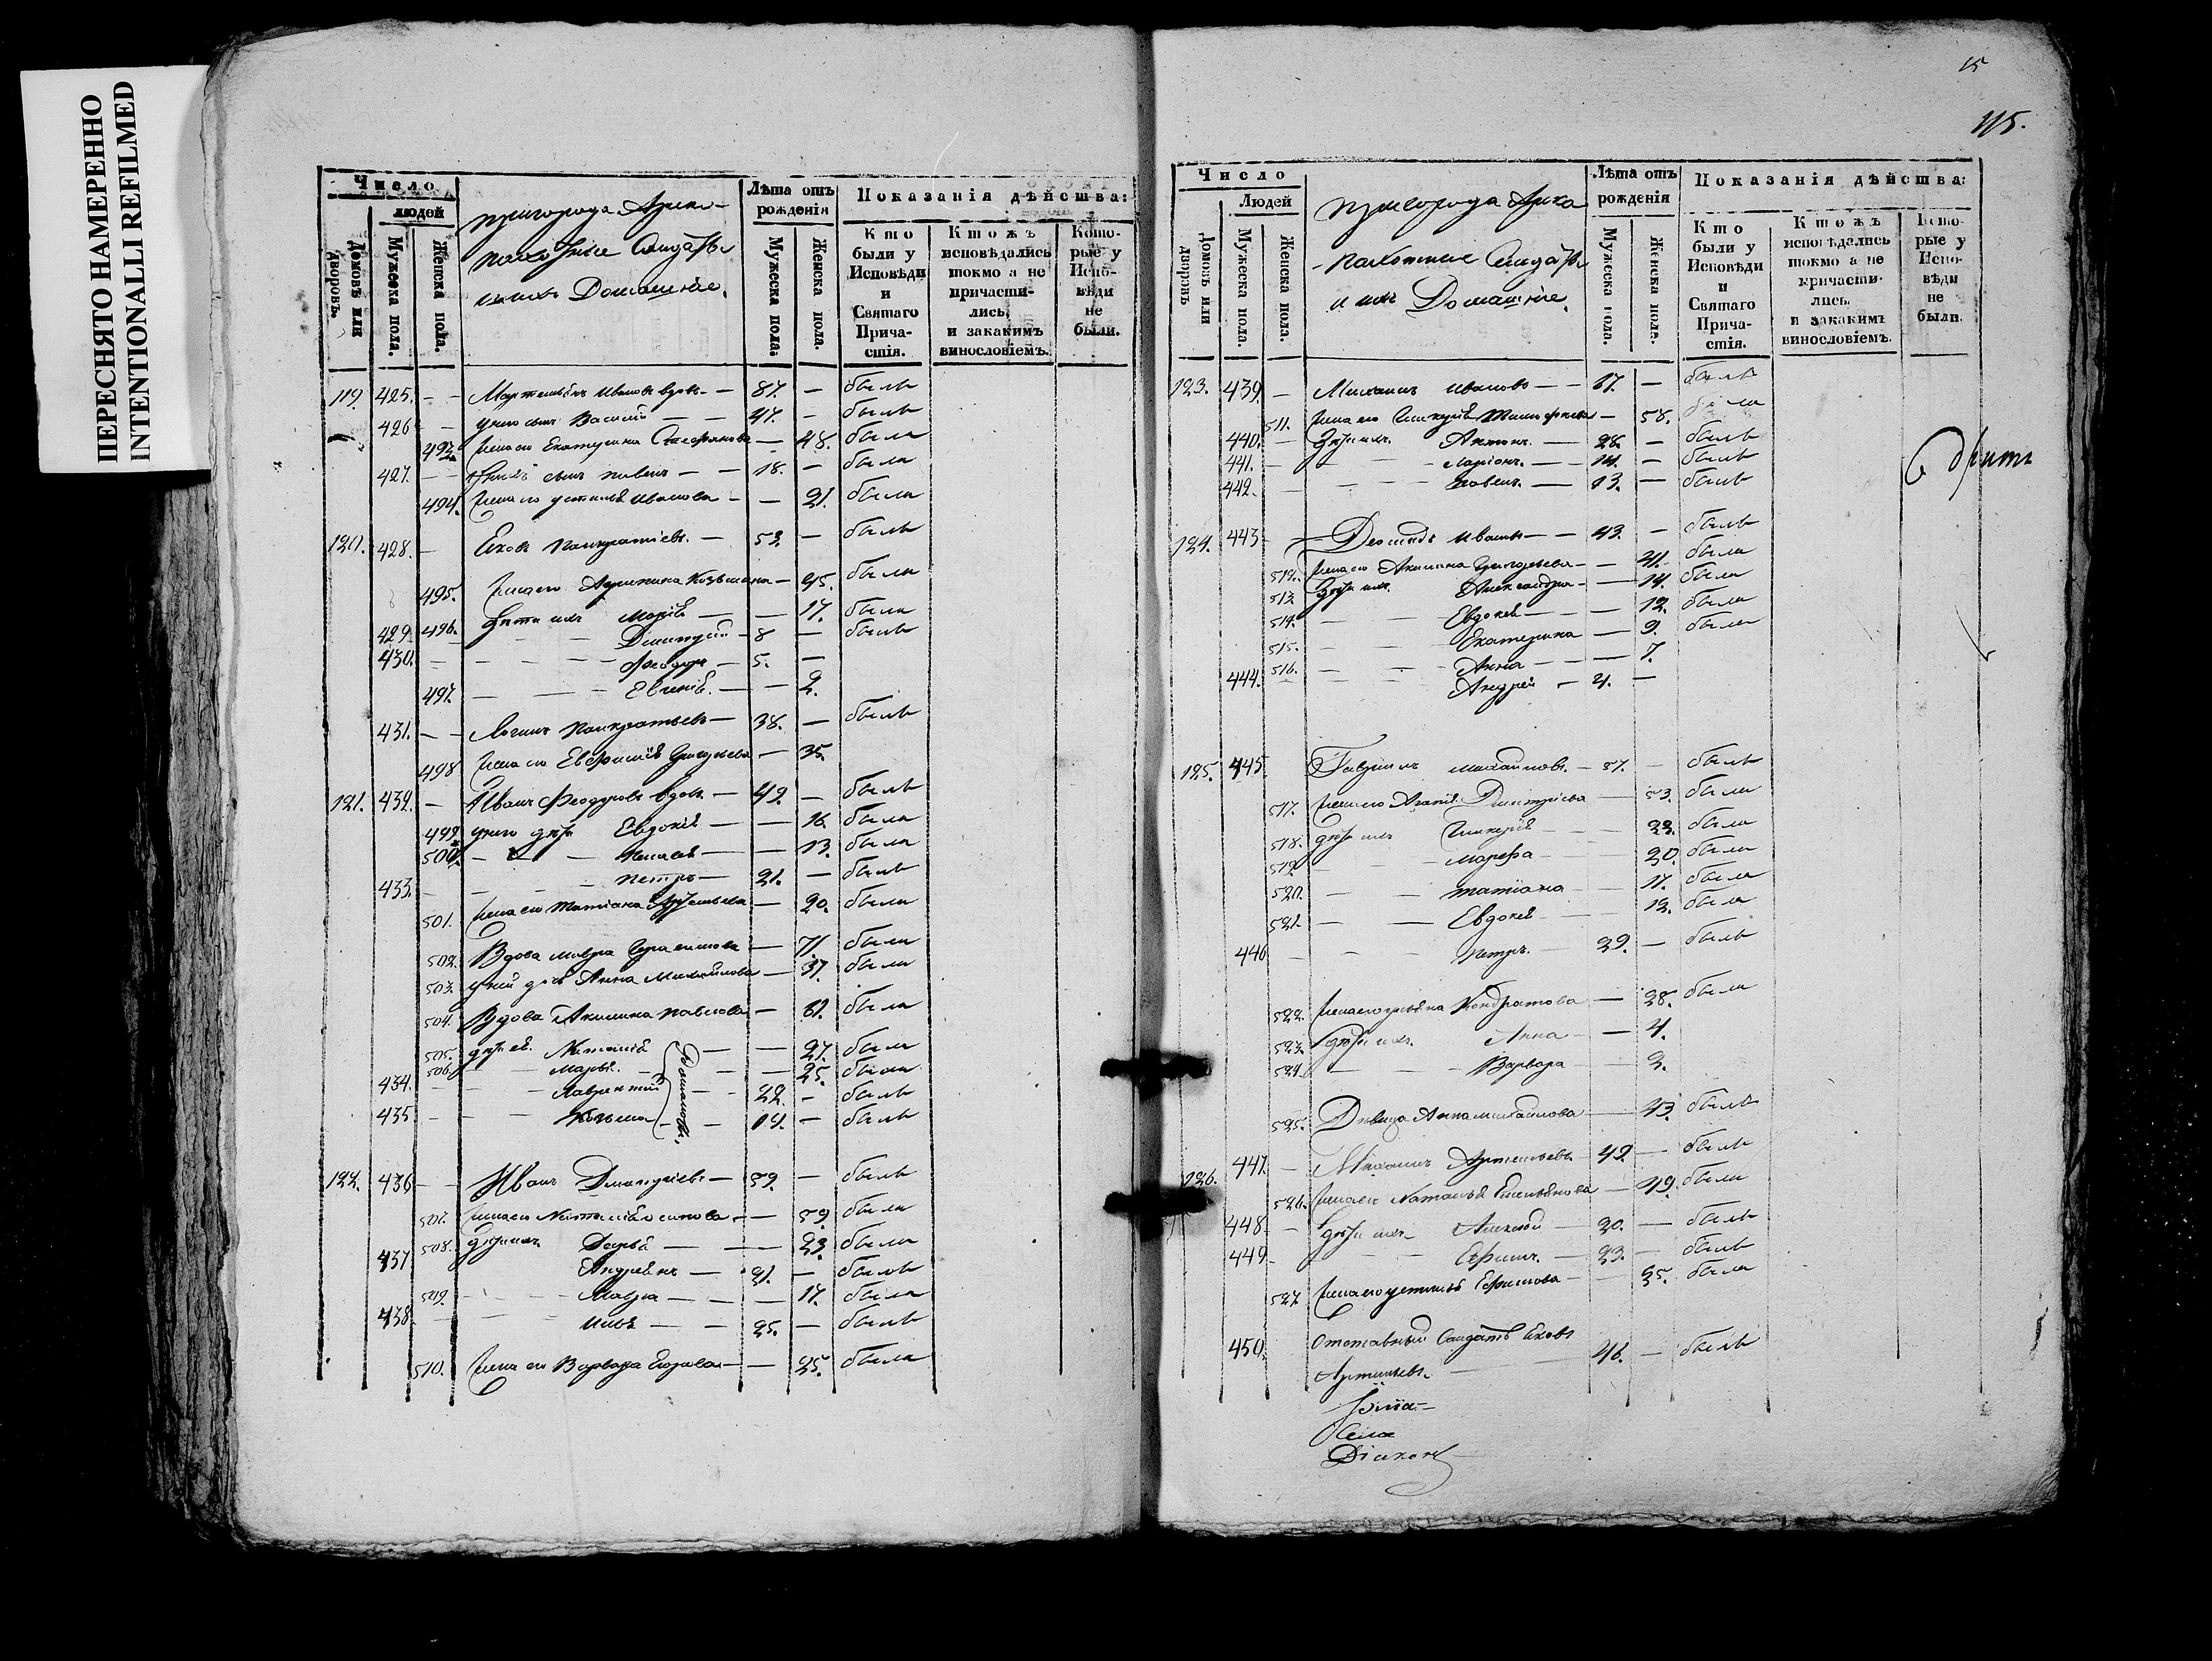 ПЕРЕСНЯТО НАМЕРЕННО
INTENTIONALLI REFILMED
Число
Домовъ или дворовъ.
людей
Мужеска пола.
Женска пола.
пригорода Арска
пахотные Солдаты
и ихъ Домашніе.
Лѣта отъ рожденія
Мужеска пола.
Женска пола.
Показанія дѣйства:
Кто были у Исповѣди и Святаго Причастія.
Ктожъ исповѣдались токмо а не причастились, и закакимъ винословіемъ.
Которые у Исповѣди не были.
119. 425. Иванов вдовъ 87. былъ
426 у него сынъ Василий 47. былъ
493 жена его Екатерина Стефанова 48. была
427. сынъ павелъ 18. былъ
494. жена его устинья Иванова 21. была
120. 428. Яковъ Панкратіевъ 53. былъ
495. жена его Козьмина 45. была
496. дѣти ихъ Марія 17. была
429 Димитрій 8 былъ
430. Феодоръ 5.
497. Евгенія 2.
431. Логинъ Панкратьевъ 38. былъ
498 жена его Григорьева 35.
121. 432. Иванъ Феодоровъ вдовъ 42. былъ
499 у него дѣти Евдокія 16. была
500 13. была
433. Петръ 21. былъ
501. жена его Татіана 20. была
502. Вдова мавра Герасимова 71. была
503. у ней дочь Анна Михайлова 37. была
504. Вдова Акилина павлова 61. была
505. дѣти ея Наталія 27. была
506. Марья 25. была
434. Лаврентій 22. былъ
435. Козьма 14. былъ
122. 436 Иванъ Димитріевъ 59. былъ
507. жена его Наталія осипова 59. была
508. дѣти ихъ Дарья 23. была
437. Андреянъ 21. былъ
509. Мавра 17. была
438. Илья 25. былъ
510. жена его Варвара Егорова 25. была
15
115.
Число
Домовъ или дворовъ
Людей
Мужеска пола.
Женска пола.
пригорода Арска
пахотные Солдаты
и ихъ Домашніе.
Лѣта отъ рожденія
Мужеска пола.
Женска пола.
Показанія дѣйства:
Кто были у Исповѣди и Святаго Причастія.
Ктожъ исповѣдались токмо а не причастились. и закакимъ винословіемъ.
Которые у Исповѣди не были.
123. 439. Михаилъ Ивановъ 67. былъ
511. жена его Гликерія Тимофеева 58. была
440. дѣти ихъ Антонъ 28. былъ
441. Ларіонъ 14. былъ
442. павелъ 13. былъ
124. 443 Леонидъ Ивановъ 43. былъ
512. жена его Акилина Григорьева 41. была
513. дѣти ихъ Александра 14. была
514. Евдокія 12. была
515. Екатерина 9. была
516. Анна 7.
444. Андрей 4.
125. 445. Гавріилъ михайловъ 57. былъ
517. жена его Агапія Димитріева 53. была
518. дѣти ихъ Гликерія 23. была
519. Марфа 20. была
520. татіана 17. была
521. Евдокія 12. была
446 Петръ 29. былъ
522. жена его ульяна Кондратова 28. была
523. дѣти ихъ Анна 4.
524. Варвара 2.
525. Дѣвица Анна михайлова 43. была
126. 447. Михаилъ Артемьевъ 49. былъ
526. жена его Наталья Емельянова 49. была
448 дѣти ихъ Алексѣй 20. былъ
449 Ефимъ 23. былъ
527. жена его устинья Ефимова 25. была
450. отставный Солдатъ Яковъ
Артемьевъ 46. былъ
Села
Діаконъ